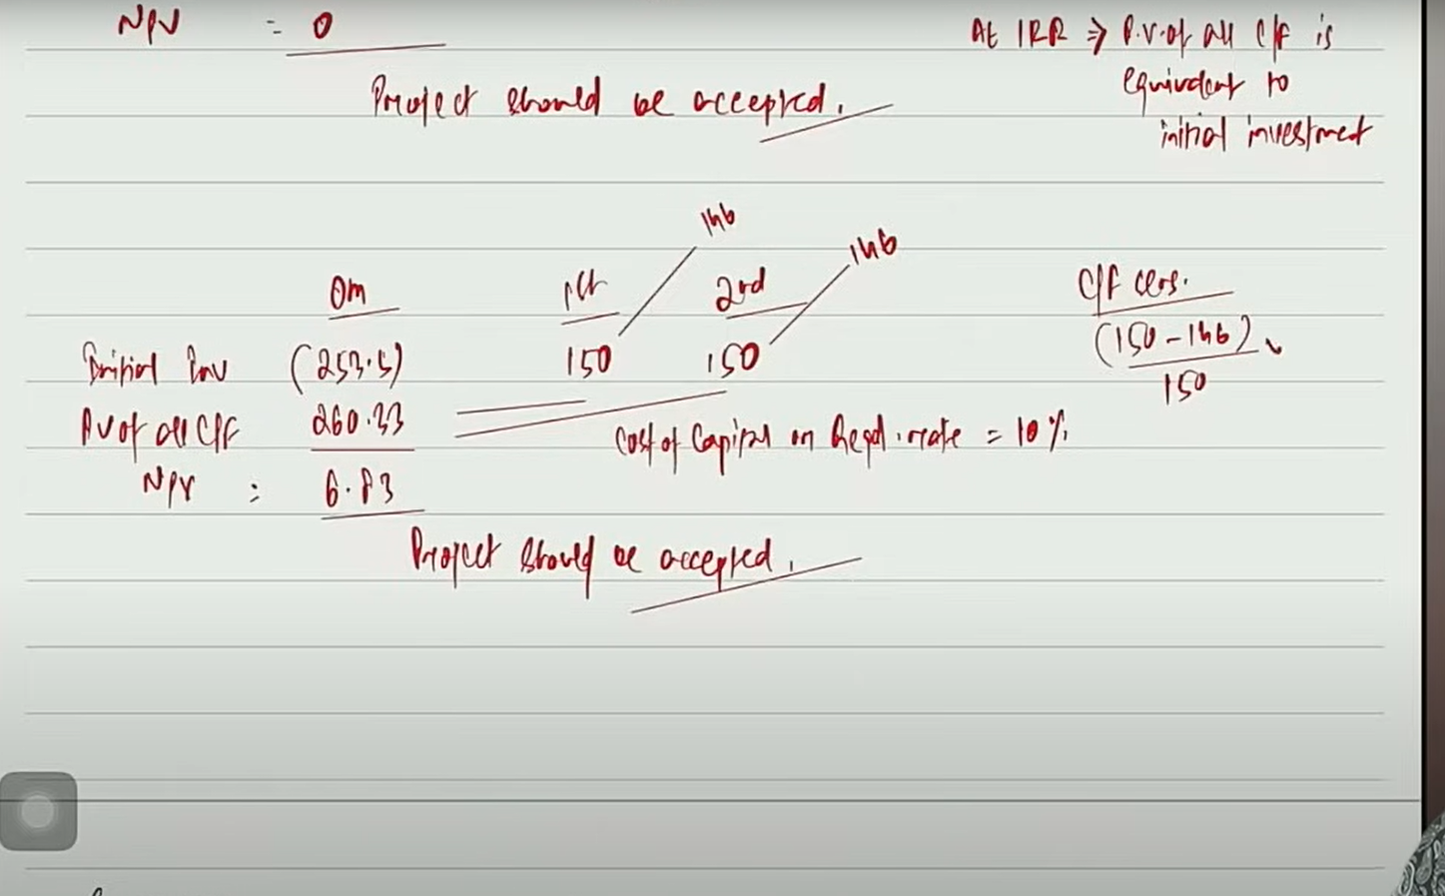 NPV = 0
At IRR ⇒ P.V. of all C/F is
equivalent to
initial investment
Project should be accepted.
146
146
0m 1st 2nd C/F sens.
Initial Inv (253.5) 150 150 (150-146)
150
PV of all C/F 260.33
Cost of Capital or Reqd. rate = 10%
NPV : 6.83
Project should be accepted.